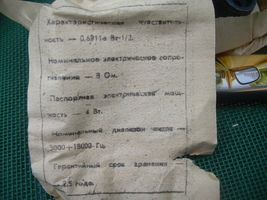 Характеристическая чувствитель-
ность —
Номинальное электрическое сопро-
тивление — 8 Ом.
Паспортная электрическая мощ-
ность — 4 Вт.
Номинальный диапазон частот —
3000÷18000 Гц.
Гарантийный срок хранения —
— 2,5 года.